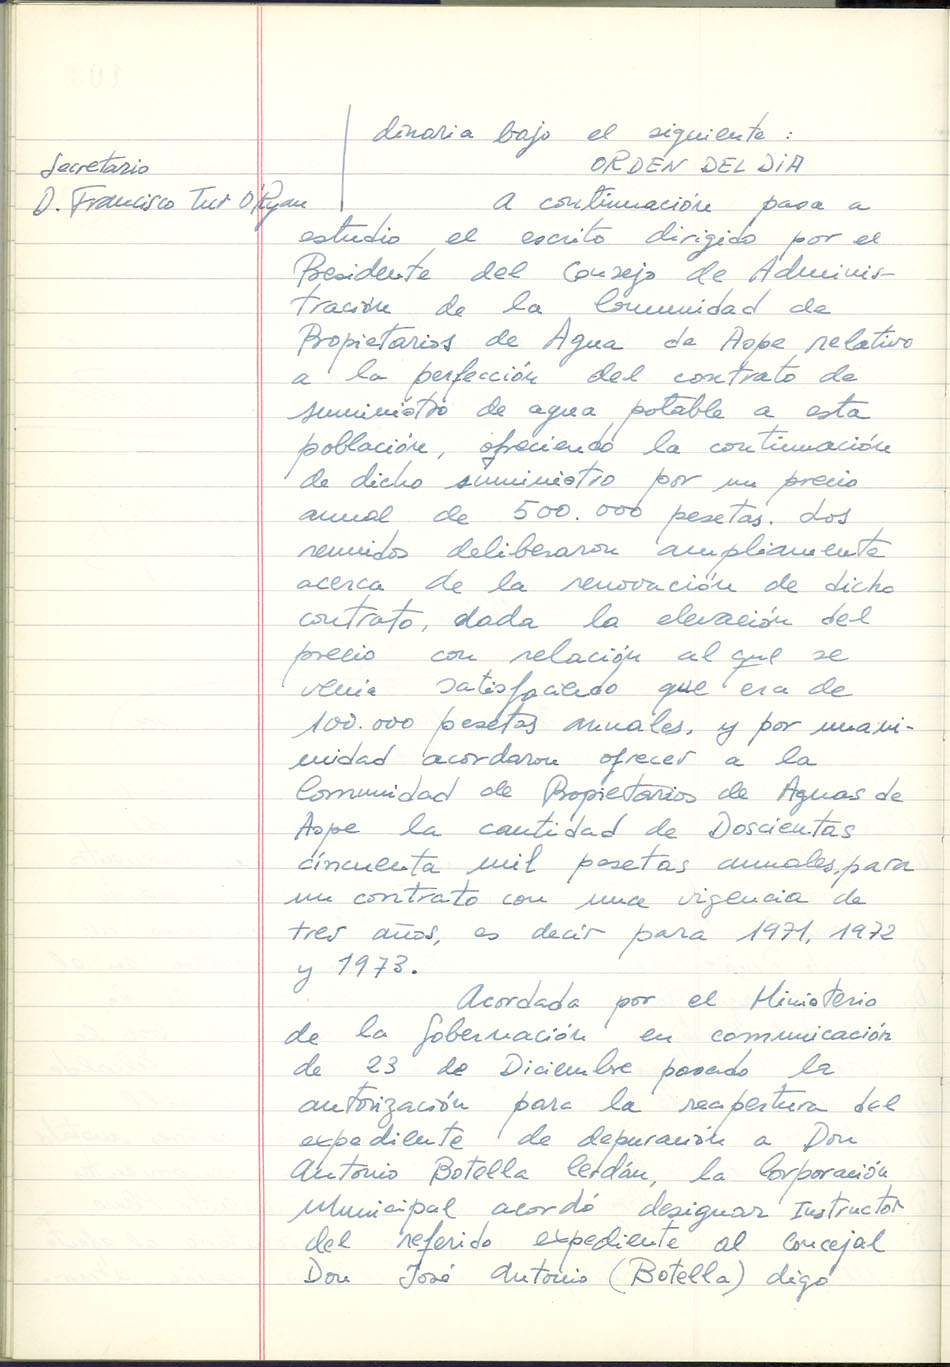 dinaria bajo el siguiente:
Secretario
ORDEN DEL DIA
D. Francisco Tur O'Ryan
A continuación pasa a
estudio el escrito dirigido por el
Presidente del Consejo de Adminis-
tración de la Comunidad de
Propietarios de Agua de Aspe relativo
a la perfección del contrato de
suministro de agua potable a esta
población, ofreciendo la continuación
de dicho suministro por un precio
anual de 500.000 pesetas. Los
reunidos deliberaron ampliamente
acerca de la renovación de dicho
contrato, dada la elevación del
precio con relación al que se
venia satisfaciendo que era de
100.000 pesetas anuales, y por unani-
midad acordaron ofrecer a la
Comunidad de Propietarios de Aguas de
Aspe la cantidad de Doscientas
cincuenta mil pesetas anuales, para
un contrato con una vigencia de
tres años, es decir para 1971, 1972
y 1973.
Acordada por el Ministerio
de la Gobernación en comunicación
de 23 de Diciembre pasado la
autorización para la reapertura del
expediente de depuración a Don
Antonio Botella Cerdán, la Corporación
Municipal acordó designar Instructor
del referido expediente al Concejal
Don José Antonio (Botella) digo